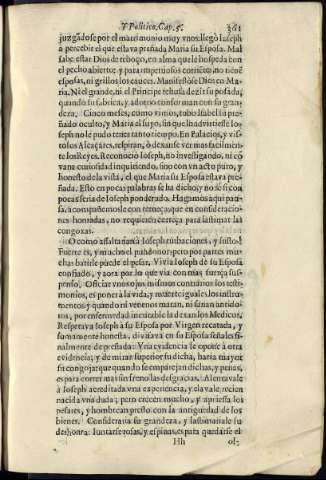 Y Politico, Cap. 5.
juzgãdose por el matrimonio muy vnos, llegò Ioseph
a percebir el que estava preñada Maria su Esposa. Mal
sabe estar Dios de reboço, en alma que le hospeda con
el pecho abierto: y para imperiosos corriẽtes, no tiene
espinas, ni grillos los cauces. Manifiestòse Dios en Ma-
ria. Ni el grande, ni el Principe rehusa dezir su posada,
quando su fabrica, y adorno conforman con su gran-
deza. Cinco meses, como vimos, tubo Isabel su
preñado oculto, y Maria el suyo, sin que lo advirtiesse Io-
seph no le pudo tener tanto tiempo. En Palacios, y vis-
tosos Alcaçares, respiran, ò dexanse ver mas facilmen-
te los Reyes. Reconociò Ioseph, no investigando, ni cõ
vana curiosidad inquiriendo, sino con vn acto puro, y
honesto de la vista, el que Maria su Esposa estava pre-
ñada. Esto en pocas palabras se ha dicho; y no se si con
pocas seria de Ioseph ponderado. Hagamos aqui pau-
sa, acompañemosle con terneça; que en consideracio-
nes honradas, no requieren certeça para lastimar las
congoxas.
O como assaltarian à Ioseph turbaciones, y sustos!
Fuerte es, y mucho el pundonor; pero por partes mu-
chas batirle puede el pesar. Vivia Ioseph de su Esposa
confiado, y aora por lo que vìa con mas fuerça sus-
penso. Oficiar vnos ojos mismos contrarios los testi-
monios, es poner a la vida, y muerte iguales los instru-
mentos: y quando assi venenos matan, ni sanan antido-
tos, por enfermedad incurable la dexan los Medicos.
Respetava Ioseph à su Esposa por Virgen recatada, y
sumamente honesta, divisava en su Esposa señalos fi-
nalmente de preñada: Vna evidencia se opone à otra
evidencia; y de mirar superior su dicha, haria mayor
su congoja: que quando se emparejan dichas, y penes,
es para correr mas sin freno las desgracias. Alentavale
à Ioseph acreditada vna experiencia, y clavale recien
nacida vna duda; pero crecen mucho, y aprietssa los
pesares, y hombrean presto con la antiguedad de los
bienes. Consideraria su grandeza, y lastimaria su
deshonra. Iuntarse rosas, y espinas, es para quedarse el
Hh
ol-